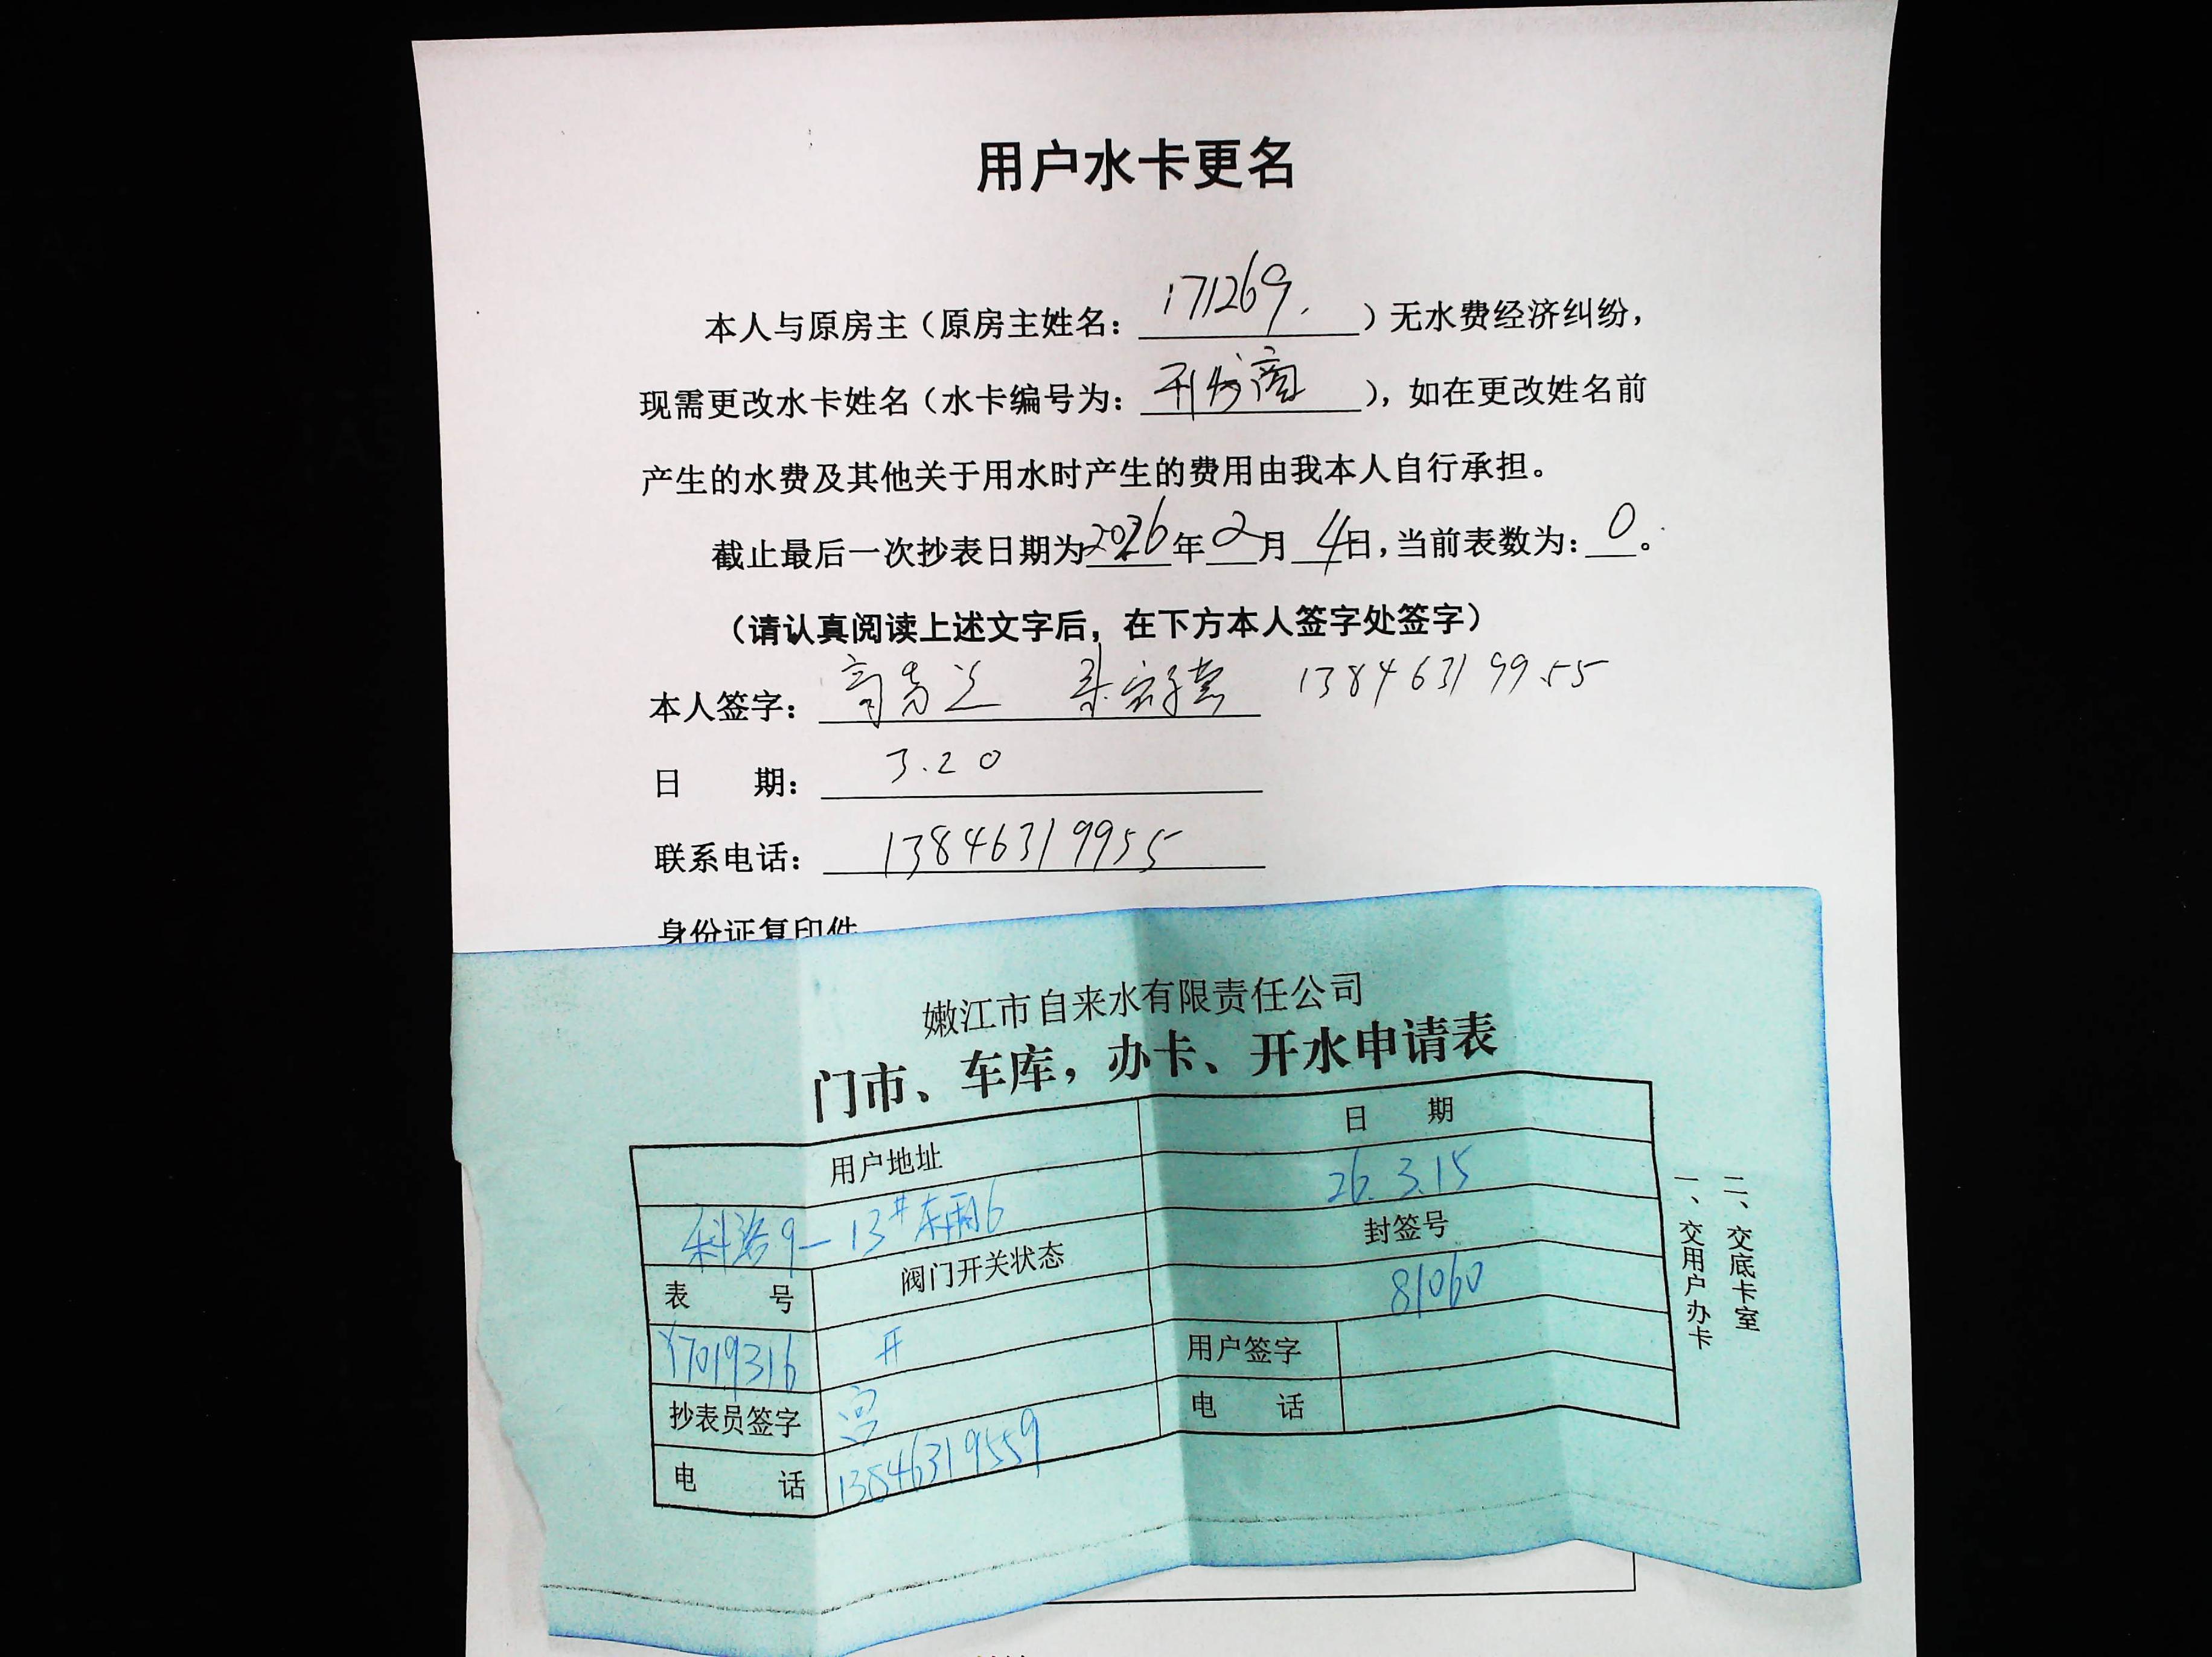 用户水卡更名
本人与原房主（原房主姓名：171269.）无水费经济纠纷，
现需更改水卡姓名（水卡编号为：开发商），如在更改姓名前
产生的水费及其他关于用水时产生的费用由我本人自行承担。
截止最后一次抄表日期为2026年2月4日，当前表数为：0。
（请认真阅读上述文字后，在下方本人签字处签字）
本人签字： 13846319955
日 期：3.20
联系电话：13846319955
身份证复印件
嫩江市自来水有限责任公司
门市、车库，办卡、开水申请表
用户地址 日 期
科洛9-13#车库6 26.3.15
表 号 阀门开关状态 封签号
Y7019316 开 81060
抄表员签字 宫 用户签字
电 话 13846319559 电 话
一、交用户办卡
二、交底卡室